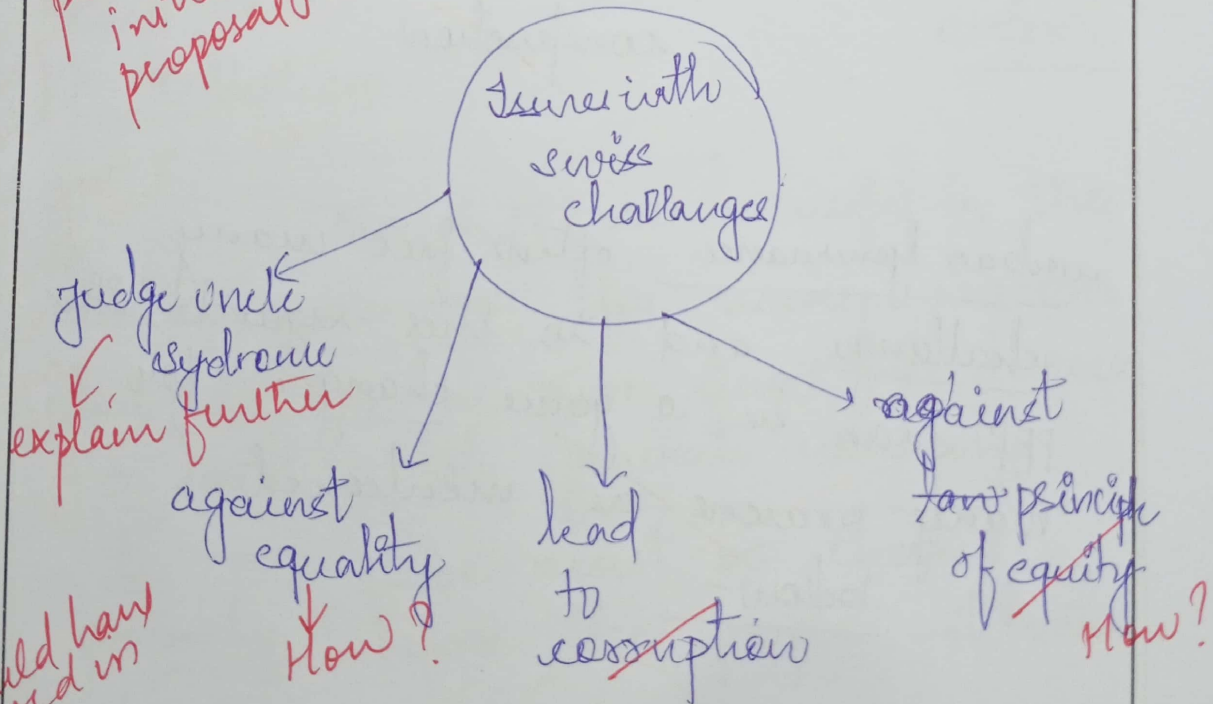 proposal
Issues with
swiss
challanges
judge uncle
sydrome
explain further
against
equality
How ?
lead
to
corruption
against
law principle
of equity
How ?